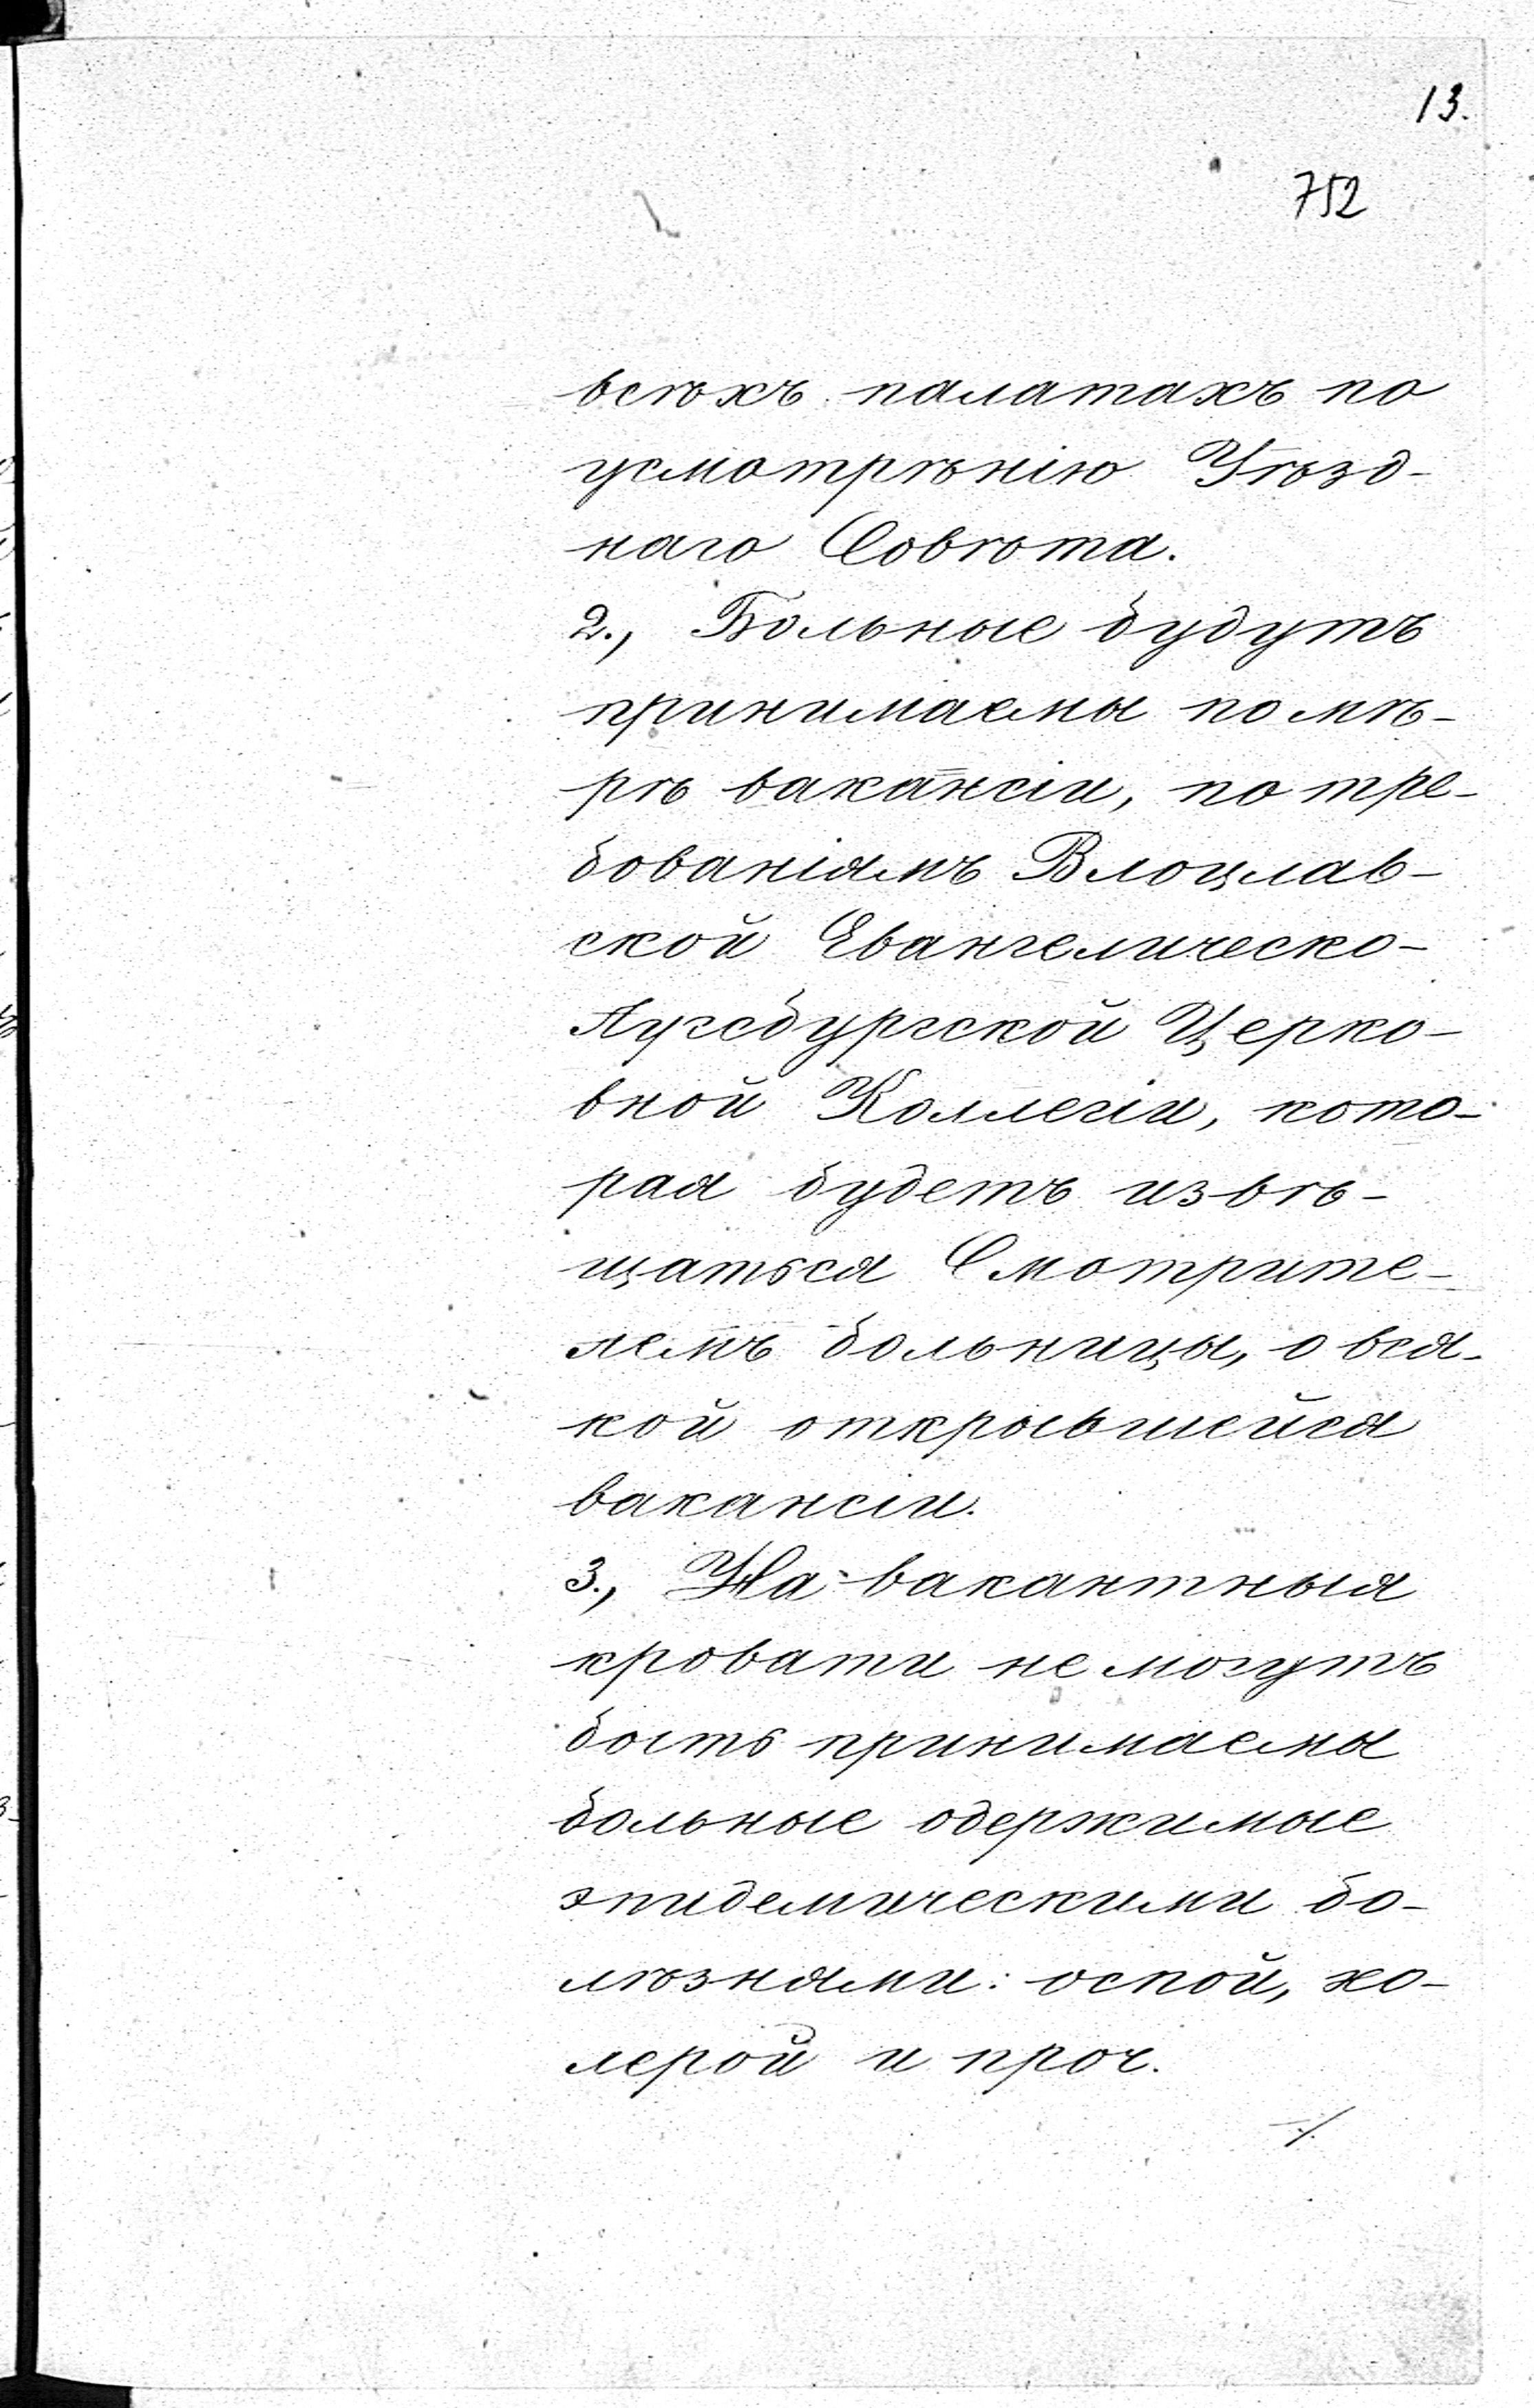 13.
752
всѣхъ палатахъ по
усмотрѣнію Уѣзд-
наго Совѣта.
2., Больные будутъ
принимаемы по мѣ-
рѣ вакансіи, по тре-
бованіямъ Влоцлав-
ской Евангелическо-
Аугсбургской Церко-
вной Коллегіи, кото-
рая будетъ извѣ-
щаться Смотрите-
лемъ больницы, о вся-
кой открывшейся
вакансіи.
3., На вакантныя
кровати не могутъ
быть принимаемы
больные одержимые
эпидемическими бо-
лѣзнями: оспой, хо-
лерой и проч.
./.